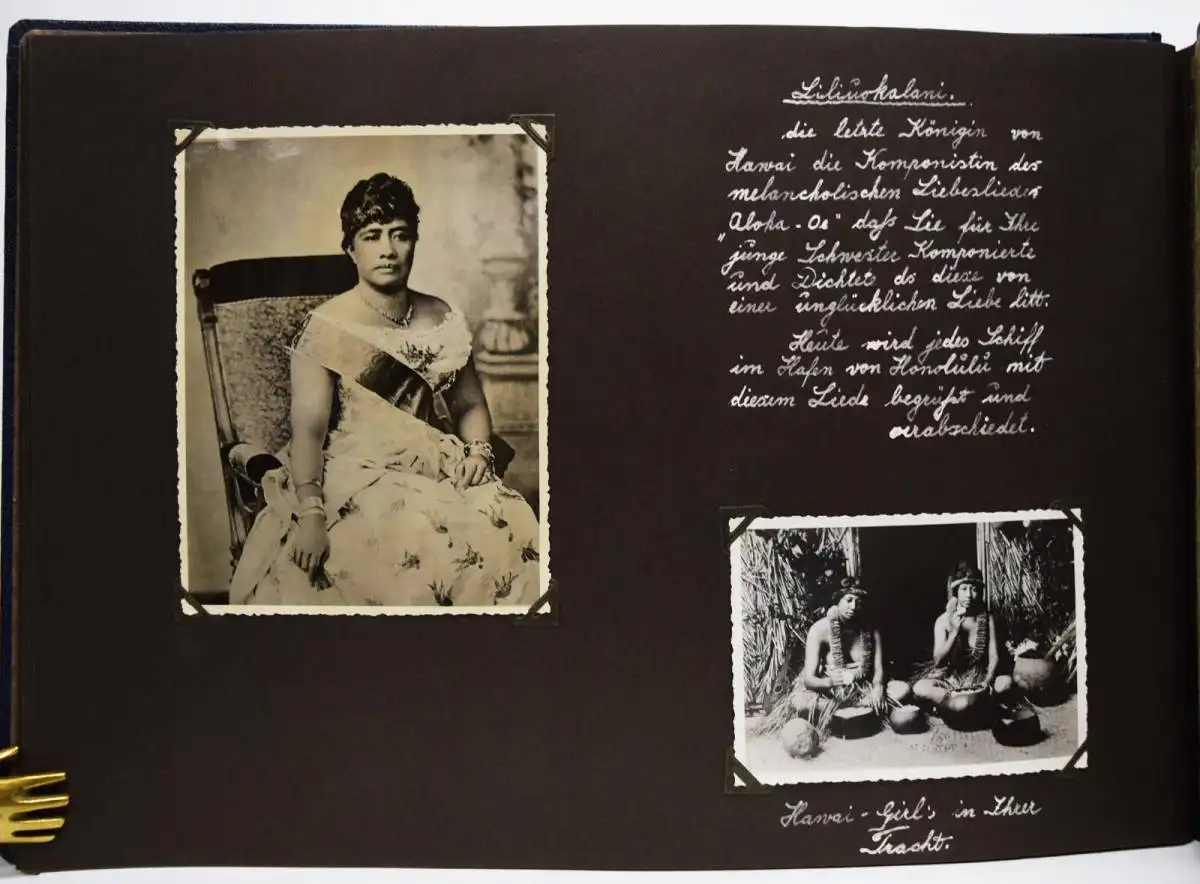 Liliuokalani.
die letzte Königin von
Hawai die Komponistin des
melancholischen Liebesliedes
„Aloha-Oe" daß Sie für Ihre
junge Schwester Komponierte
und Dichtete da diese von
einer unglücklichen Liebe litt.
Heute wird jedes Schiff
im Hafen von Honolulu mit
diesem Liede begrüßt und
verabschiedet.
Hawai-Girl's in Ihrer
Tracht.